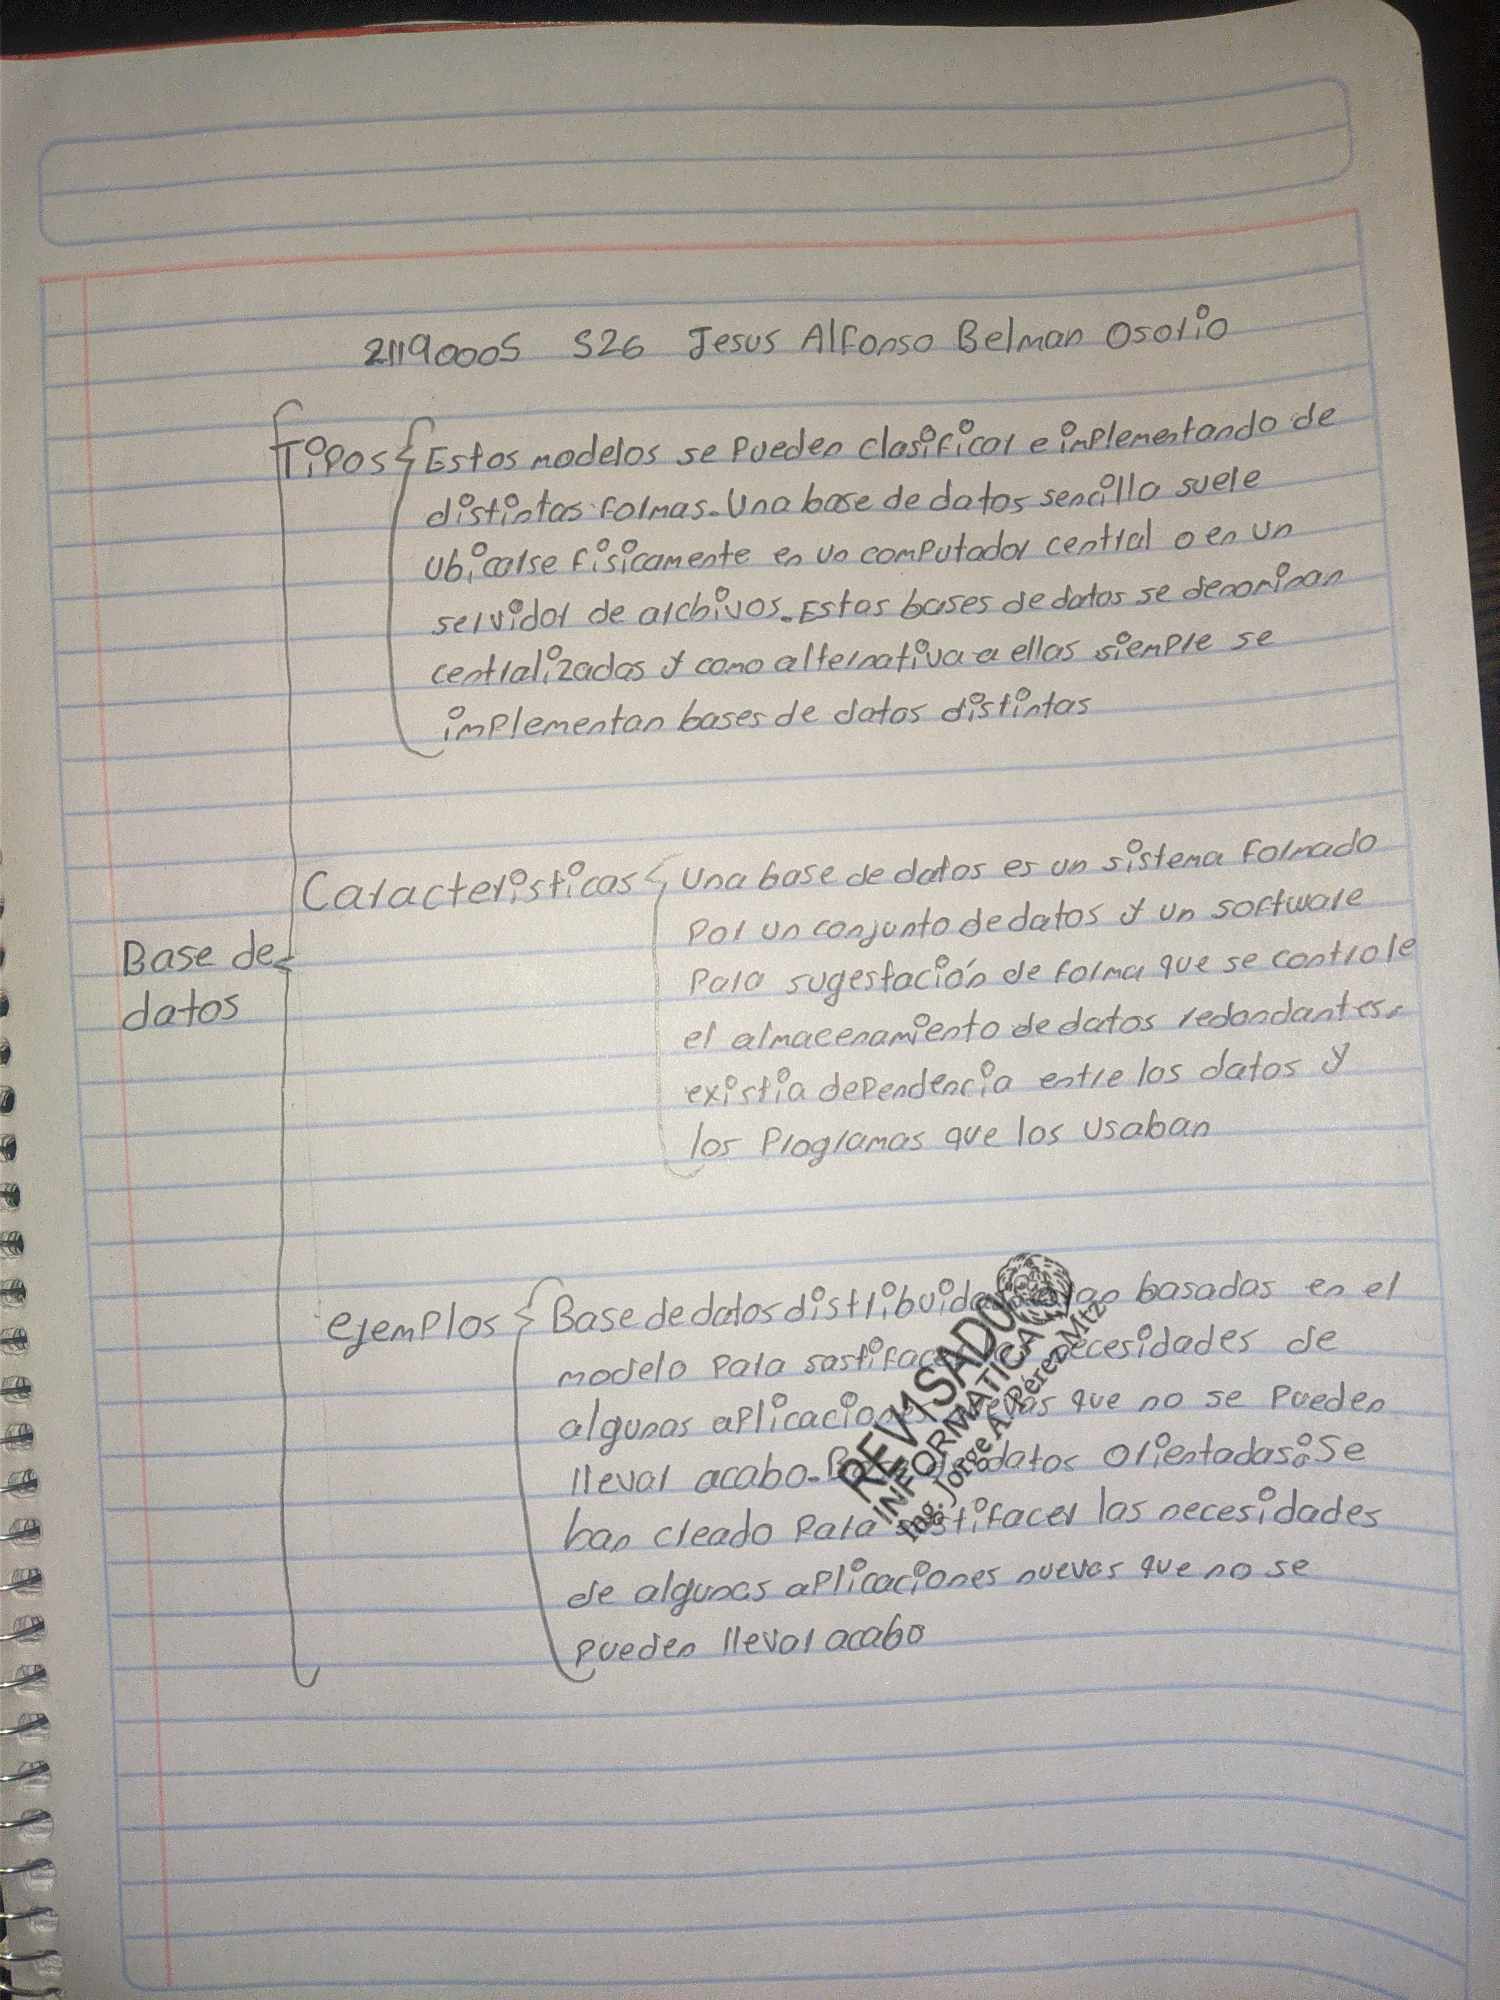 21190005 S26 Jesus Alfonso Belman Osorio
Tipos
Estos modelos se pueden clasificar e implementando de
distintas formas. Una base de datos sencilla suele
ubicarse fisicamente en un computador central o en un
servidor de archivos. Estas bases de datos se denominan
centralizadas y como alternativa a ellas siemple se
implementan bases de datos distintas
Base de
datos
Caracteristicas
Una base de datos es un sistema formado
por un conjunto de datos y un software
para sugestación de forma que se controle
el almacenamiento de datos redondantes.
existia dependencia entre los datos y
los Programas que los usaban
ejemplos
Base de datos distribuidas basadas en el
modelo para sastifacer necesidades de
algunas aplicaciones nuevas que no se pueden
llevar acabo. datos orientadas: Se
han creado para sastifacer las necesidades
de algunas aplicaciones nuevas que no se
pueden llevar acabo
REV1SADO
INFORMATICA
Ing. Jorge A. Pérez Mtz